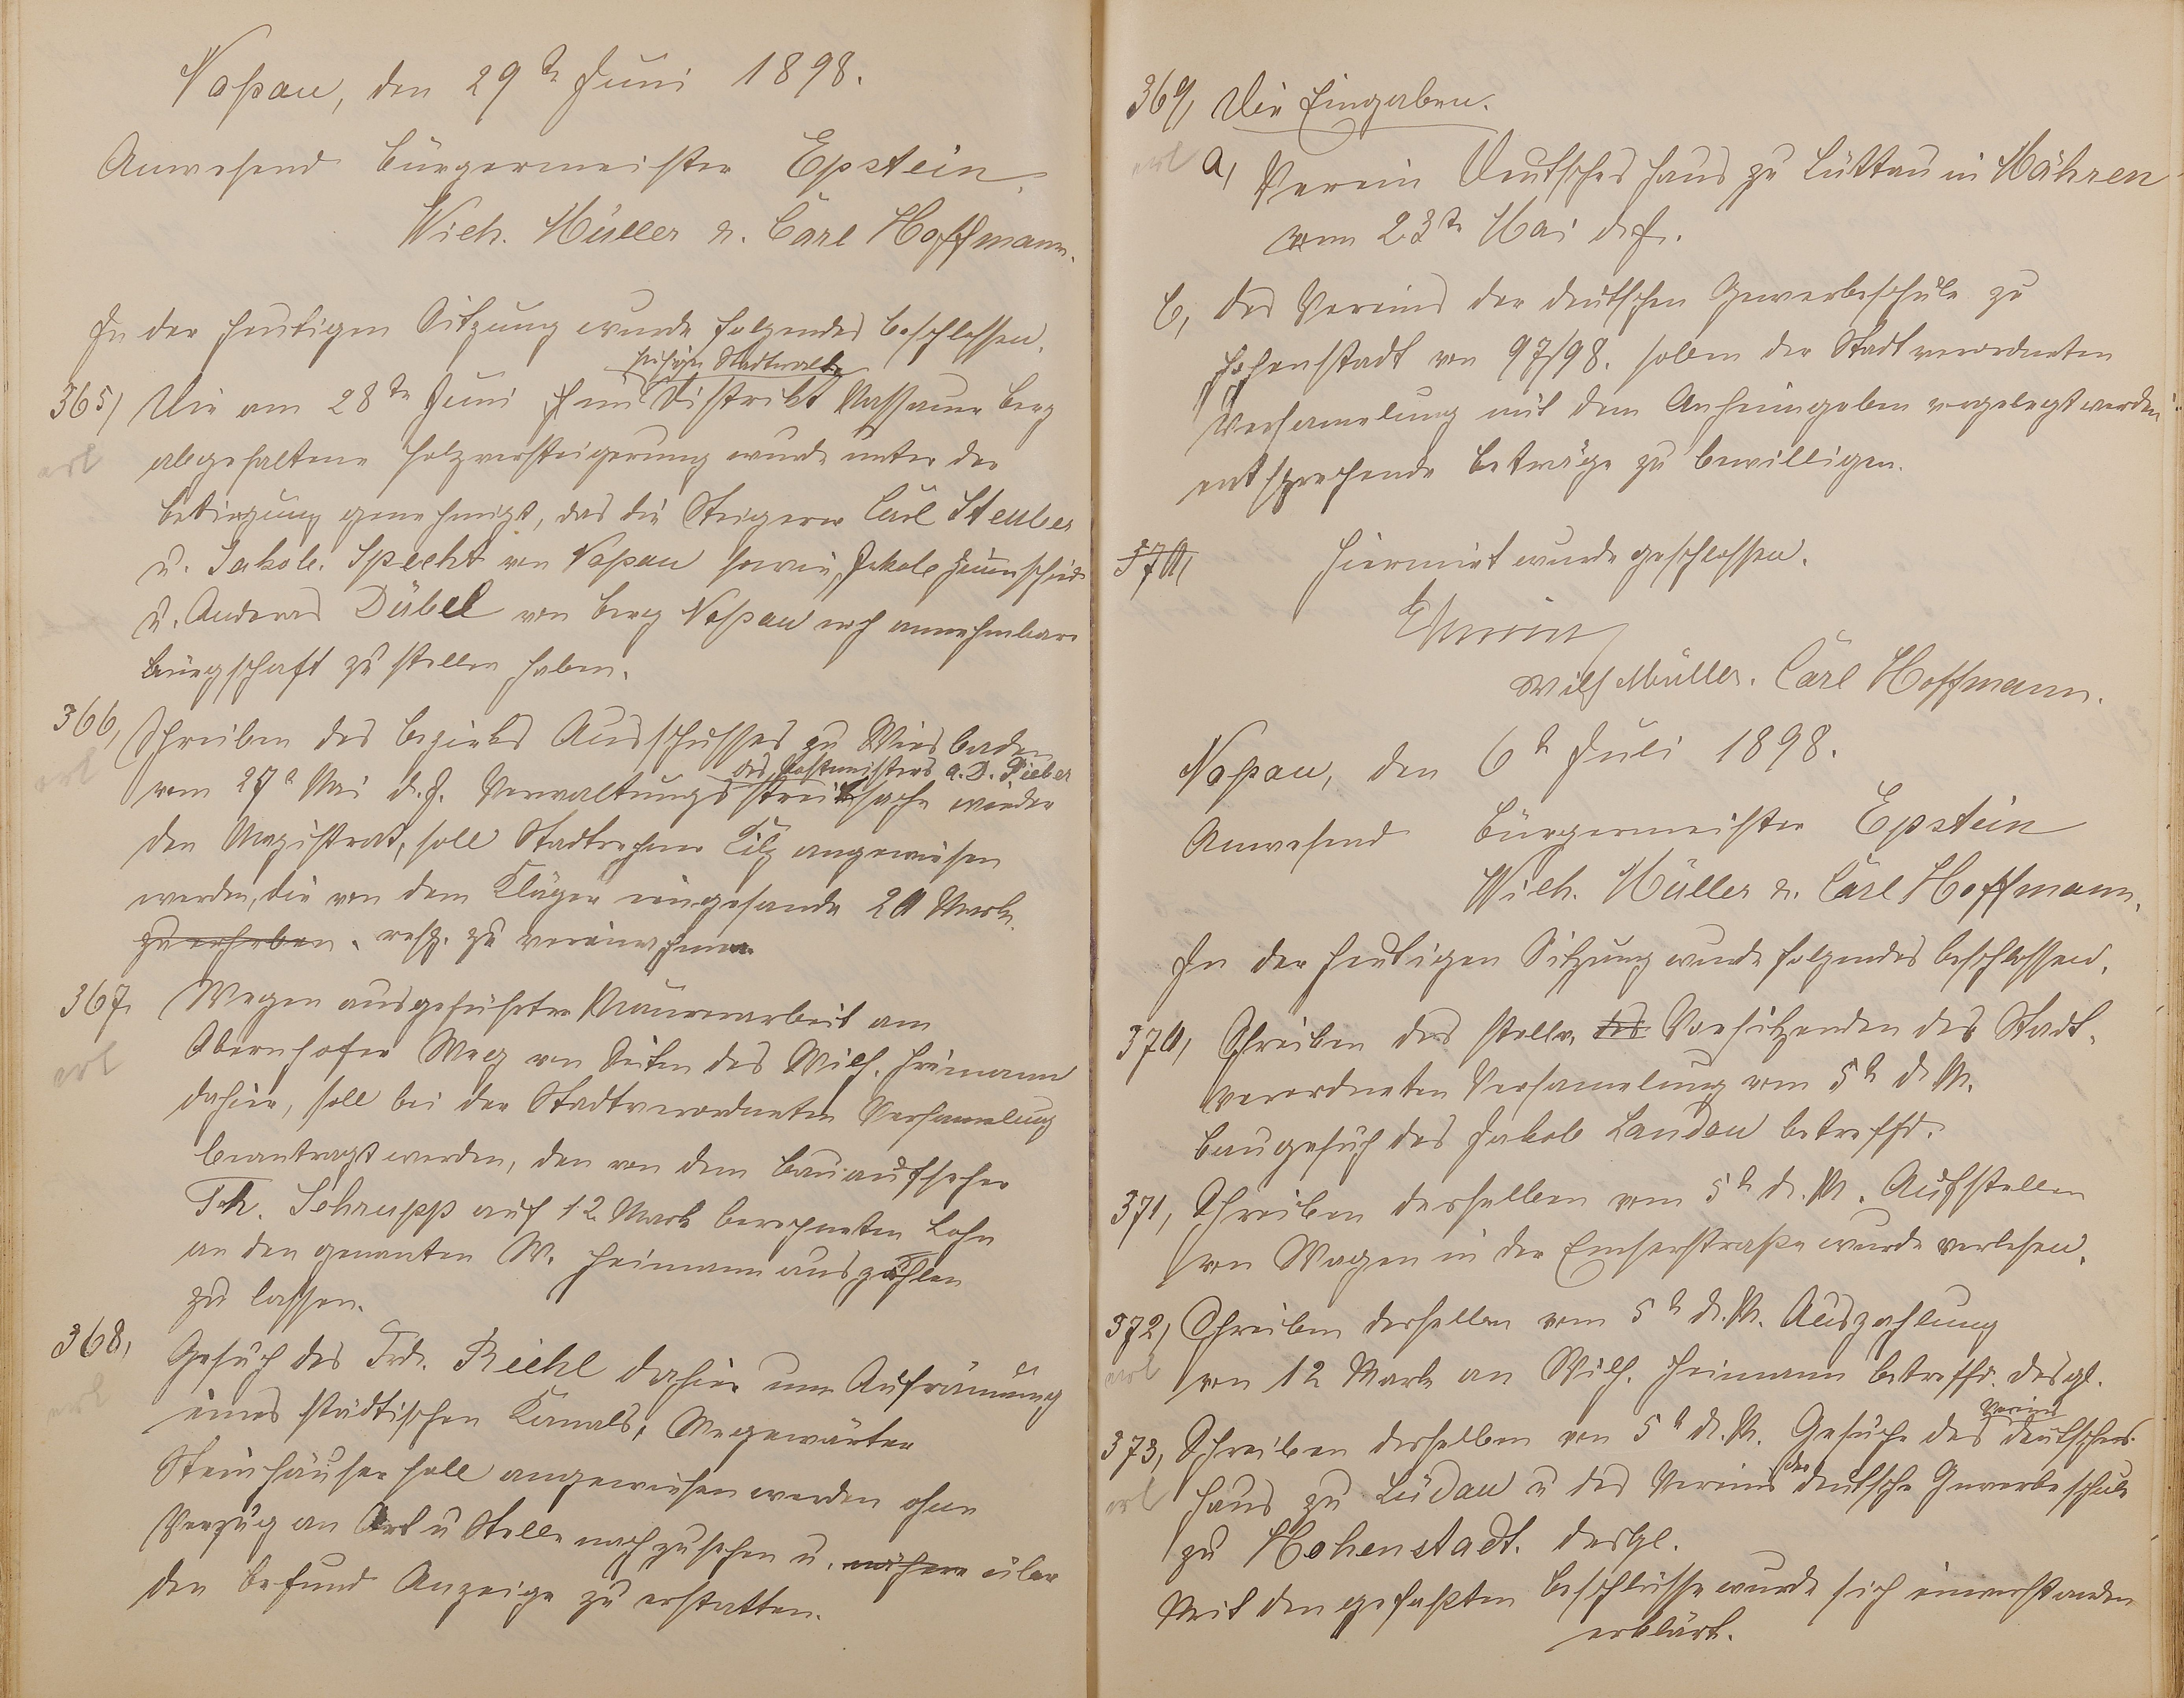 Naßau, den 29te Juni 1898.
Anwesend Bürgermeister Epstein.
Wilh. Müller u. Carl Hoffmann.
In der heutigen Sitzung wurde folgendes beschlossen.
hiesigen Stadtwalde
365, Die am 28te Juni im Distrikt Nassauer Berg
erl abgehaltene Holzversteigerung wurde unter der
Bedingung genehmigt, das die Steigerer Carl Steuber
u. Jakob Specht von Naßau sowie Jakob
u. Anderes Dübel von Berg Naßau noch annehmbare
Bürgschaft zu stellen haben.
366, Schreiben des Bezirks Ausschusses zu Wiesbaden
des Postmeisters a. D. Pieber
erl vom 27t Mai d. J. Verwaltungsstreitsache wieder
den Magistrat, soll Stadtrechner Lilg angewiesen
werden, die von dem Kläger eingesande 20 Mark
zu erheben. resp. zu vereinnahmen
367. Wegen ausgeführter Maurerarbeit am
erl Obernhofer Weg von Seiten des Wilh. Heimann
dahier, soll bei der Stadtverordneten Versamelung
beantragt werden, den von dem Bauaufseher
Th. Schrupp auf 12 Mark berechneten Lohn
an den genanten W. Heimann auszahlen
zu lassen.
368, Gesuch des Frdr. Riehl dahier um Aufräumung
erl eines städtischen Kanals, Wegewärter
Steinhäuser soll angewiesen werden ohne
Verzug an Ort u Stelle nachzusehen u. nähere über
den Befund Anzeige zu erstatten.
369, Die Eingaben.
erl a, Verein Deutsches Haus zu Lüttau in Mähren
vom 23te Mai d. J.
b, des Vereins der deutschen Gewerbeschule zu
Hohenstadt von 97/98. sollen der Stadtverordneten
Versamelung mit dem Anheimgeben vorgelegt werden
entsprechende Beträge zu bewilligen.
370, Hiermit wurde geschlossen.
Epstein
Wilh Müller. Carl Hoffmann.
Naßau, den 6t Juli 1898.
Anwesend Bürgermeister Epstein
Wilh. Müller u. Carl Hoffmann.
In der heutigen Sitzung wurde folgendes beschlossen.
370, Schreiben des stellv. des Vorsitzenden des Stadt-
verordneten Versamelung vom 5t d. M.
Baugesuch des Jakob Landau betreffd.
371, Schreiben desselben vom 5t d. M. Aufstellen
von Wagen in der Emserstraße wurde verlesen.
372, Schreiben desselben vom 5t d. M. Auszahlung
erl von 12 Mark an Wilh. Heimann betreffd. desgl.
Vereins
373, Schreiben desselben von 5t d. M. Gesuche des deutschen
erl Haus zu Lüdau u des Vereins der deutsche Gewerbeschule
zu Hohenstadt. desgl.
Mit den gefaßten Beschlüsse wurde sich einverstanden
erklärt.